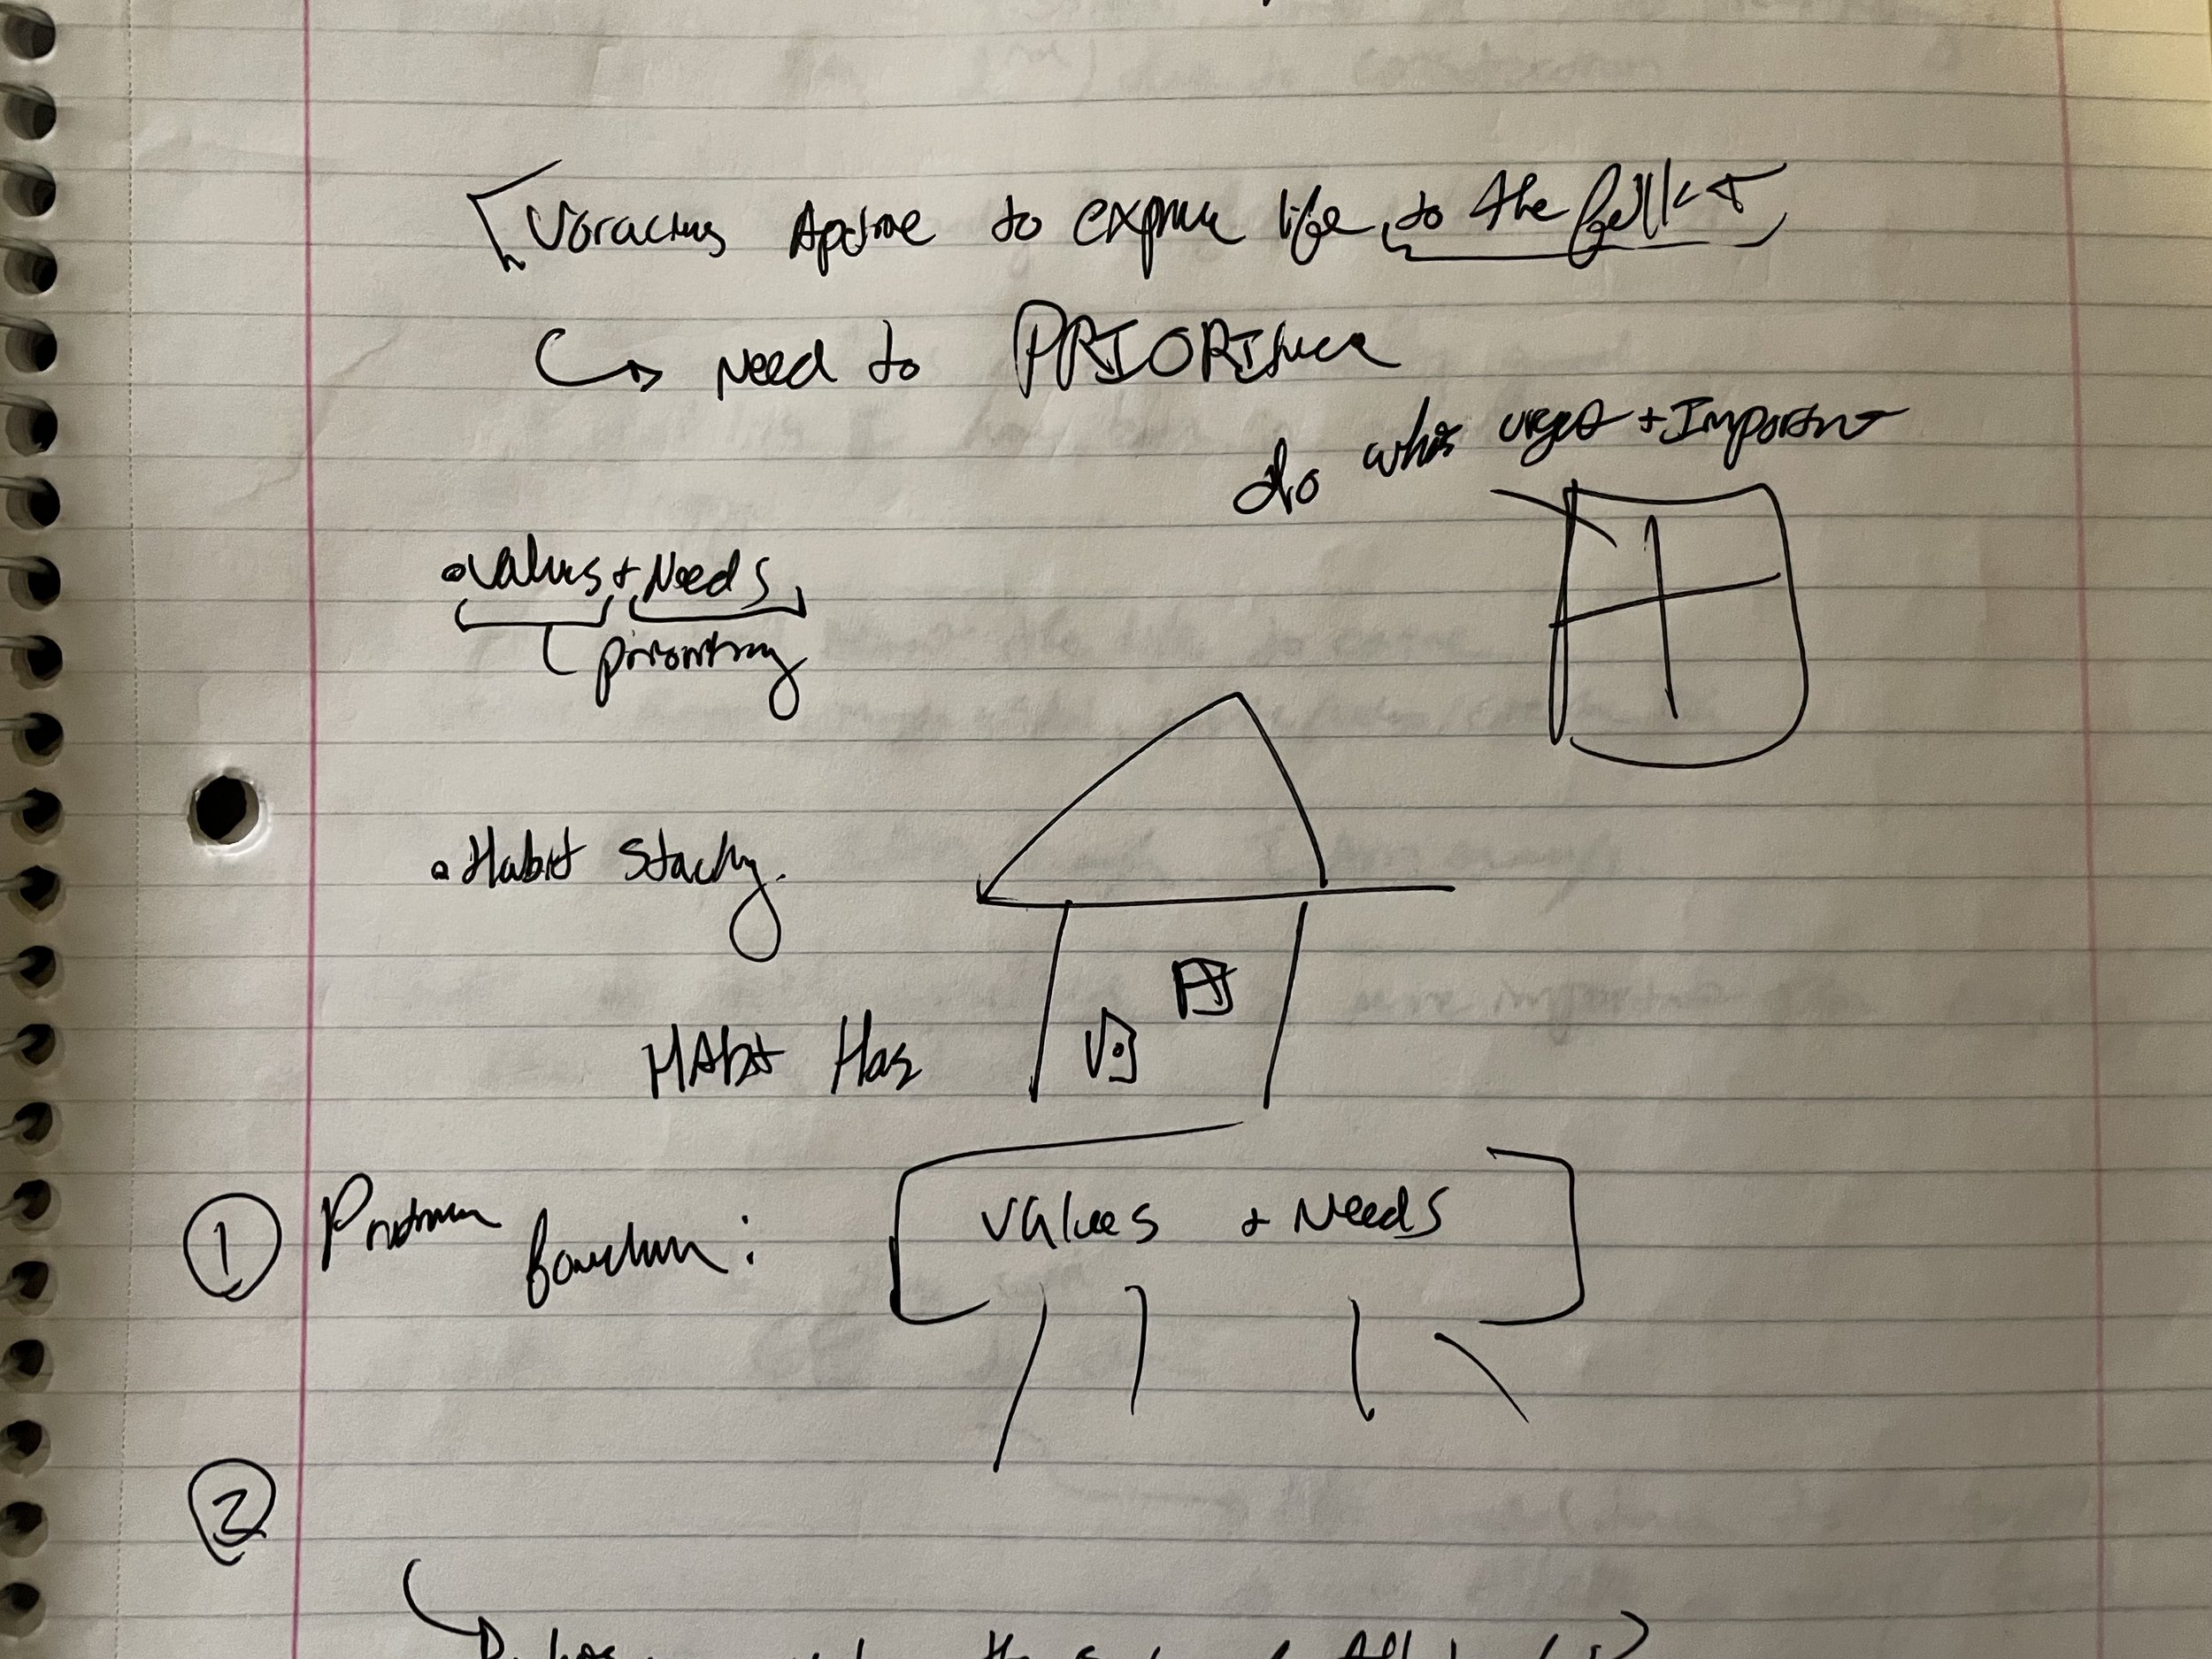 Voracious Apetite to expernce life to the fullest
Need to PRIORITIZE
do whats urget + Important
• Values + Needs
prioritizing
• Habit Stacking.
HAbit Has
① foundation:
Values + Needs
②